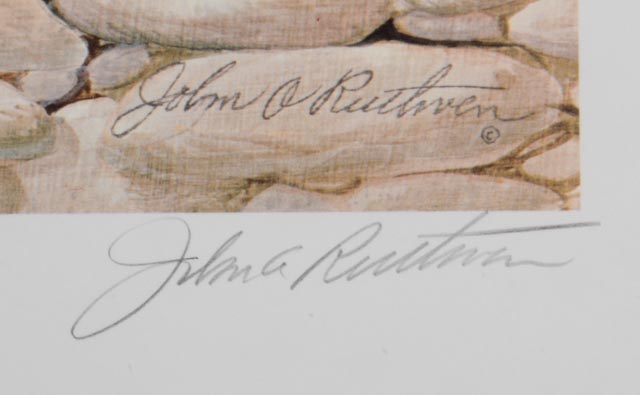 John A Ruthven
©
John A Ruthven